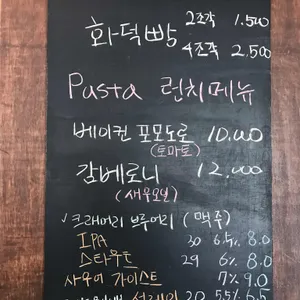 화덕빵 2조각 1.500
4조각 2,500
Pasta 런치메뉴
베이컨 포모도로 10.000
(토마토)
감베로니 12,000
(새우오일)
✓크래머리 브루어리 (맥주)
IPA 30 6.5% 8.0
스타우트 29 6% 8.0
사우어 가이스트 7% 9.0
20 5.5% 6.5